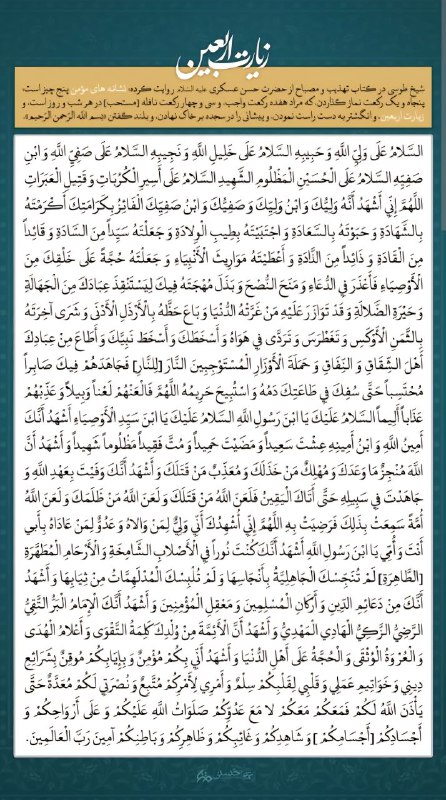 زیارت اربعین
شیخ طوسی در کتاب تهذیب و مصباح از حضرت حسن عسکری علیه السلام روایت کرده: نشانه های مؤمن پنج چیز است؛
پنجاه و یک رکعت نماز گذاردن، که مراد هفده رکعت واجب، و سی و چهار رکعت نافله [مستحب] در هر شب و روز است، و
زیارت اربعین، و انگشتر به دست راست نمودن، و پیشانی را در سجده بر خاک نهادن، و بلند گفتن «بسم الله الرحمن الرحیم».
السَّلامُ عَلَى وَلِيِّ اللَّهِ وَ حَبِيبِهِ السَّلامُ عَلَى خَلِيلِ اللَّهِ وَ نَجِيبِهِ السَّلامُ عَلَى صَفِيِّ اللَّهِ وَ ابْنِ
صَفِيِّهِ السَّلامُ عَلَى الْحُسَيْنِ الْمَظْلُومِ الشَّهِيدِ السَّلامُ عَلَى أَسِيرِ الْكُرُبَاتِ وَ قَتِيلِ الْعَبَرَاتِ
اللَّهُمَّ إِنِّي أَشْهَدُ أَنَّهُ وَلِيُّكَ وَ ابْنُ وَلِيِّكَ وَ صَفِيُّكَ وَ ابْنُ صَفِيِّكَ الْفَائِزُ بِكَرَامَتِكَ أَكْرَمْتَهُ
بِالشَّهَادَةِ وَ حَبَوْتَهُ بِالسَّعَادَةِ وَ اجْتَبَيْتَهُ بِطِيبِ الْوِلادَةِ وَ جَعَلْتَهُ سَيِّداً مِنَ السَّادَةِ وَ قَائِداً
مِنَ الْقَادَةِ وَ ذَائِداً مِنَ الذَّادَةِ وَ أَعْطَيْتَهُ مَوَارِيثَ الْأَنْبِيَاءِ وَ جَعَلْتَهُ حُجَّةً عَلَى خَلْقِكَ مِنَ
الْأَوْصِيَاءِ فَأَعْذَرَ فِي الدُّعَاءِ وَ مَنَحَ النُّصْحَ وَ بَذَلَ مُهْجَتَهُ فِيكَ لِيَسْتَنْقِذَ عِبَادَكَ مِنَ الْجَهَالَةِ
وَ حَيْرَةِ الضَّلالَةِ وَ قَدْ تَوَازَرَ عَلَيْهِ مَنْ غَرَّتْهُ الدُّنْيَا وَ بَاعَ حَظَّهُ بِالْأَرْذَلِ الْأَدْنَى وَ شَرَى آخِرَتَهُ
بِالثَّمَنِ الْأَوْكَسِ وَ تَغَطْرَسَ وَ تَرَدَّى فِي هَوَاهُ وَ أَسْخَطَكَ وَ أَسْخَطَ نَبِيَّكَ وَ أَطَاعَ مِنْ عِبَادِكَ
أَهْلَ الشِّقَاقِ وَ النِّفَاقِ وَ حَمَلَةَ الْأَوْزَارِ الْمُسْتَوْجِبِينَ النَّارَ [لِلنَّارِ] فَجَاهَدَهُمْ فِيكَ صَابِراً
مُحْتَسِباً حَتَّى سُفِكَ فِي طَاعَتِكَ دَمُهُ وَ اسْتُبِيحَ حَرِيمُهُ اللَّهُمَّ فَالْعَنْهُمْ لَعْناً وَبِيلاً وَ عَذِّبْهُمْ
عَذَاباً أَلِيماً السَّلامُ عَلَيْكَ يَا ابْنَ رَسُولِ اللَّهِ السَّلامُ عَلَيْكَ يَا ابْنَ سَيِّدِ الْأَوْصِيَاءِ أَشْهَدُ أَنَّكَ
أَمِينُ اللَّهِ وَ ابْنُ أَمِينِهِ عِشْتَ سَعِيداً وَ مَضَيْتَ حَمِيداً وَ مُتَّ فَقِيداً مَظْلُوماً شَهِيداً وَ أَشْهَدُ أَنَّ
اللَّهَ مُنْجِزٌ مَا وَعَدَكَ وَ مُهْلِكٌ مَنْ خَذَلَكَ وَ مُعَذِّبٌ مَنْ قَتَلَكَ وَ أَشْهَدُ أَنَّكَ وَفَيْتَ بِعَهْدِ اللَّهِ وَ
جَاهَدْتَ فِي سَبِيلِهِ حَتَّى أَتَاكَ الْيَقِينُ فَلَعَنَ اللَّهُ مَنْ قَتَلَكَ وَ لَعَنَ اللَّهُ مَنْ ظَلَمَكَ وَ لَعَنَ اللَّهُ
أُمَّةً سَمِعَتْ بِذَلِكَ فَرَضِيَتْ بِهِ اللَّهُمَّ إِنِّي أُشْهِدُكَ أَنِّي وَلِيٌّ لِمَنْ وَالاهُ وَ عَدُوٌّ لِمَنْ عَادَاهُ بِأَبِي
أَنْتَ وَ أُمِّي يَا ابْنَ رَسُولِ اللَّهِ أَشْهَدُ أَنَّكَ كُنْتَ نُوراً فِي الْأَصْلابِ الشَّامِخَةِ وَ الْأَرْحَامِ الْمُطَهَّرَةِ
[الطَّاهِرَةِ] لَمْ تُنَجِّسْكَ الْجَاهِلِيَّةُ بِأَنْجَاسِهَا وَ لَمْ تُلْبِسْكَ الْمُدْلَهِمَّاتُ مِنْ ثِيَابِهَا وَ أَشْهَدُ
أَنَّكَ مِنْ دَعَائِمِ الدِّينِ وَ أَرْكَانِ الْمُسْلِمِينَ وَ مَعْقِلِ الْمُؤْمِنِينَ وَ أَشْهَدُ أَنَّكَ الْإِمَامُ الْبَرُّ التَّقِيُّ
الرَّضِيُّ الزَّكِيُّ الْهَادِي الْمَهْدِيُّ وَ أَشْهَدُ أَنَّ الْأَئِمَّةَ مِنْ وُلْدِكَ كَلِمَةُ التَّقْوَى وَ أَعْلامُ الْهُدَى
وَ الْعُرْوَةُ الْوُثْقَى وَ الْحُجَّةُ عَلَى أَهْلِ الدُّنْيَا وَ أَشْهَدُ أَنِّي بِكُمْ مُؤْمِنٌ وَ بِإِيَابِكُمْ مُوقِنٌ بِشَرَائِعِ
دِينِي وَ خَوَاتِيمِ عَمَلِي وَ قَلْبِي لِقَلْبِكُمْ سِلْمٌ وَ أَمْرِي لِأَمْرِكُمْ مُتَّبِعٌ وَ نُصْرَتِي لَكُمْ مُعَدَّةٌ حَتَّى
يَأْذَنَ اللَّهُ لَكُمْ فَمَعَكُمْ مَعَكُمْ لا مَعَ عَدُوِّكُمْ صَلَوَاتُ اللَّهِ عَلَيْكُمْ وَ عَلَى أَرْوَاحِكُمْ وَ
أَجْسَادِكُمْ [أَجْسَامِكُمْ] وَ شَاهِدِكُمْ وَ غَائِبِكُمْ وَ ظَاهِرِكُمْ وَ بَاطِنِكُمْ آمِينَ رَبَّ الْعَالَمِينَ.